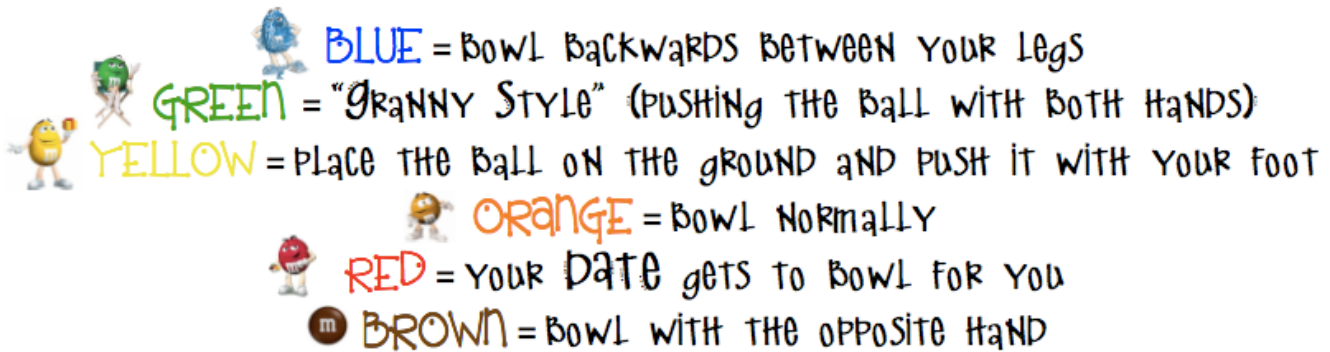 BLUE = Bowl Backwards Between Your Legs
GREEN = "Granny Style" (pushing the ball with both hands)
YELLOW = Place the ball on the ground and push it with your foot
ORANGE = Bowl Normally
RED = Your Date gets to bowl for you
m BROWN = Bowl with the opposite hand